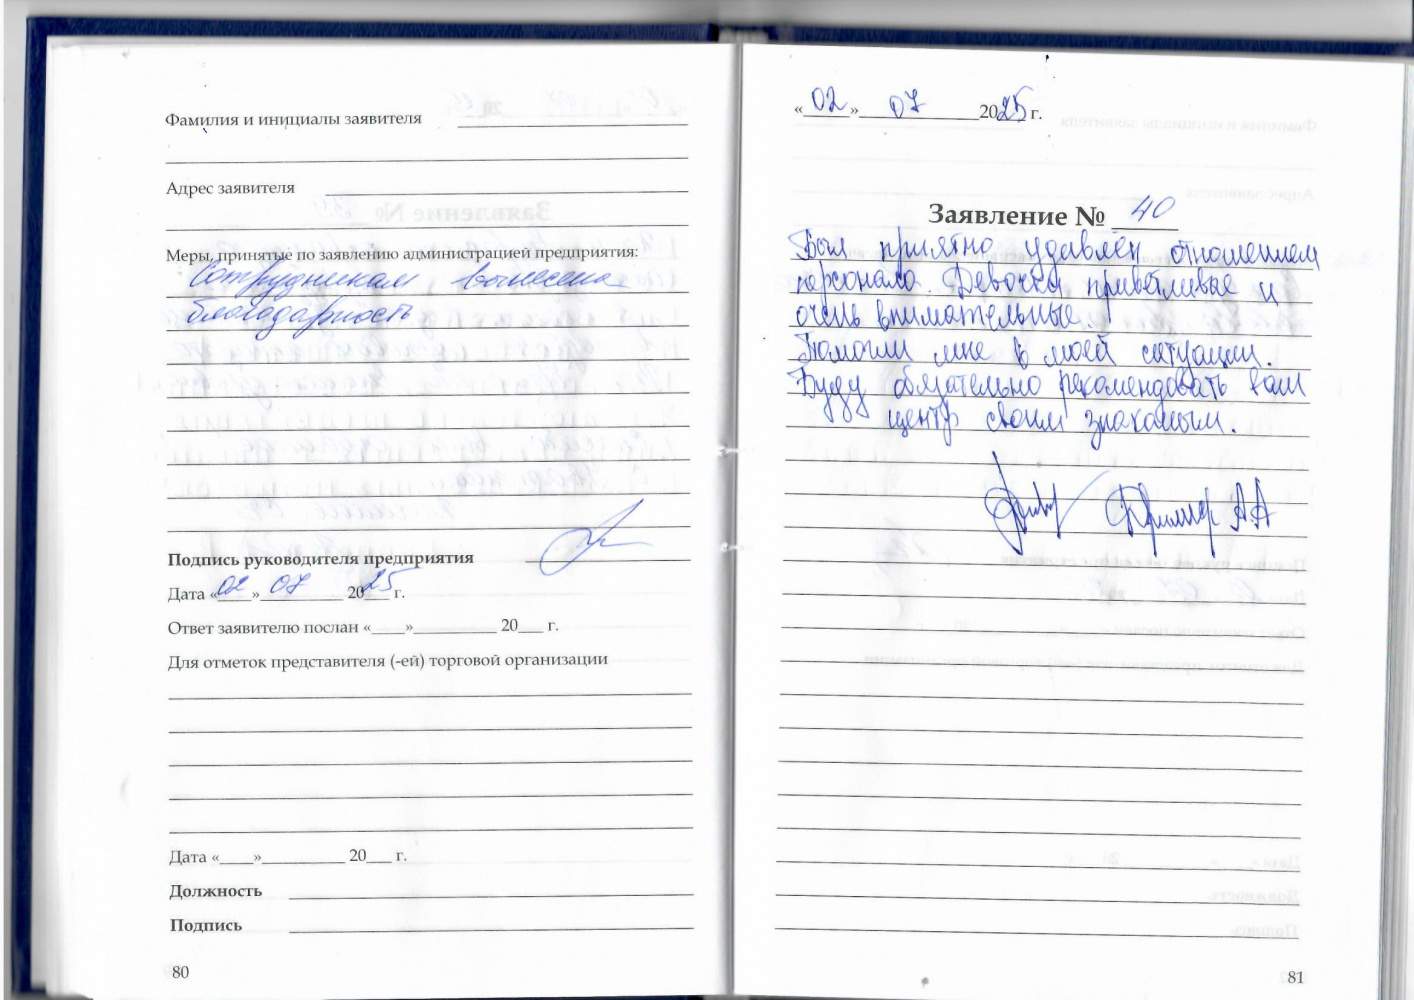 Фамилия и инициалы заявителя
Адрес заявителя
Меры, принятые по заявлению администрацией предприятия:
Сотрудникам вынесена
благодарность
Подпись руководителя предприятия
Дата «02» 07 2025 г.
Ответ заявителю послан «____»__________ 20___ г.
Для отметок представителя (-ей) торговой организации
Дата «____»__________ 20___ г.
Должность
Подпись
80
«02» 07 2025 г.
Заявление № 40
Был приятно удивлен отношением
персонала. Девочки приветливые и
очень внимательные.
Помогли мне в моей ситуации.
Буду обязательно рекомендовать ваш
центр своим знакомым.
А.А
81